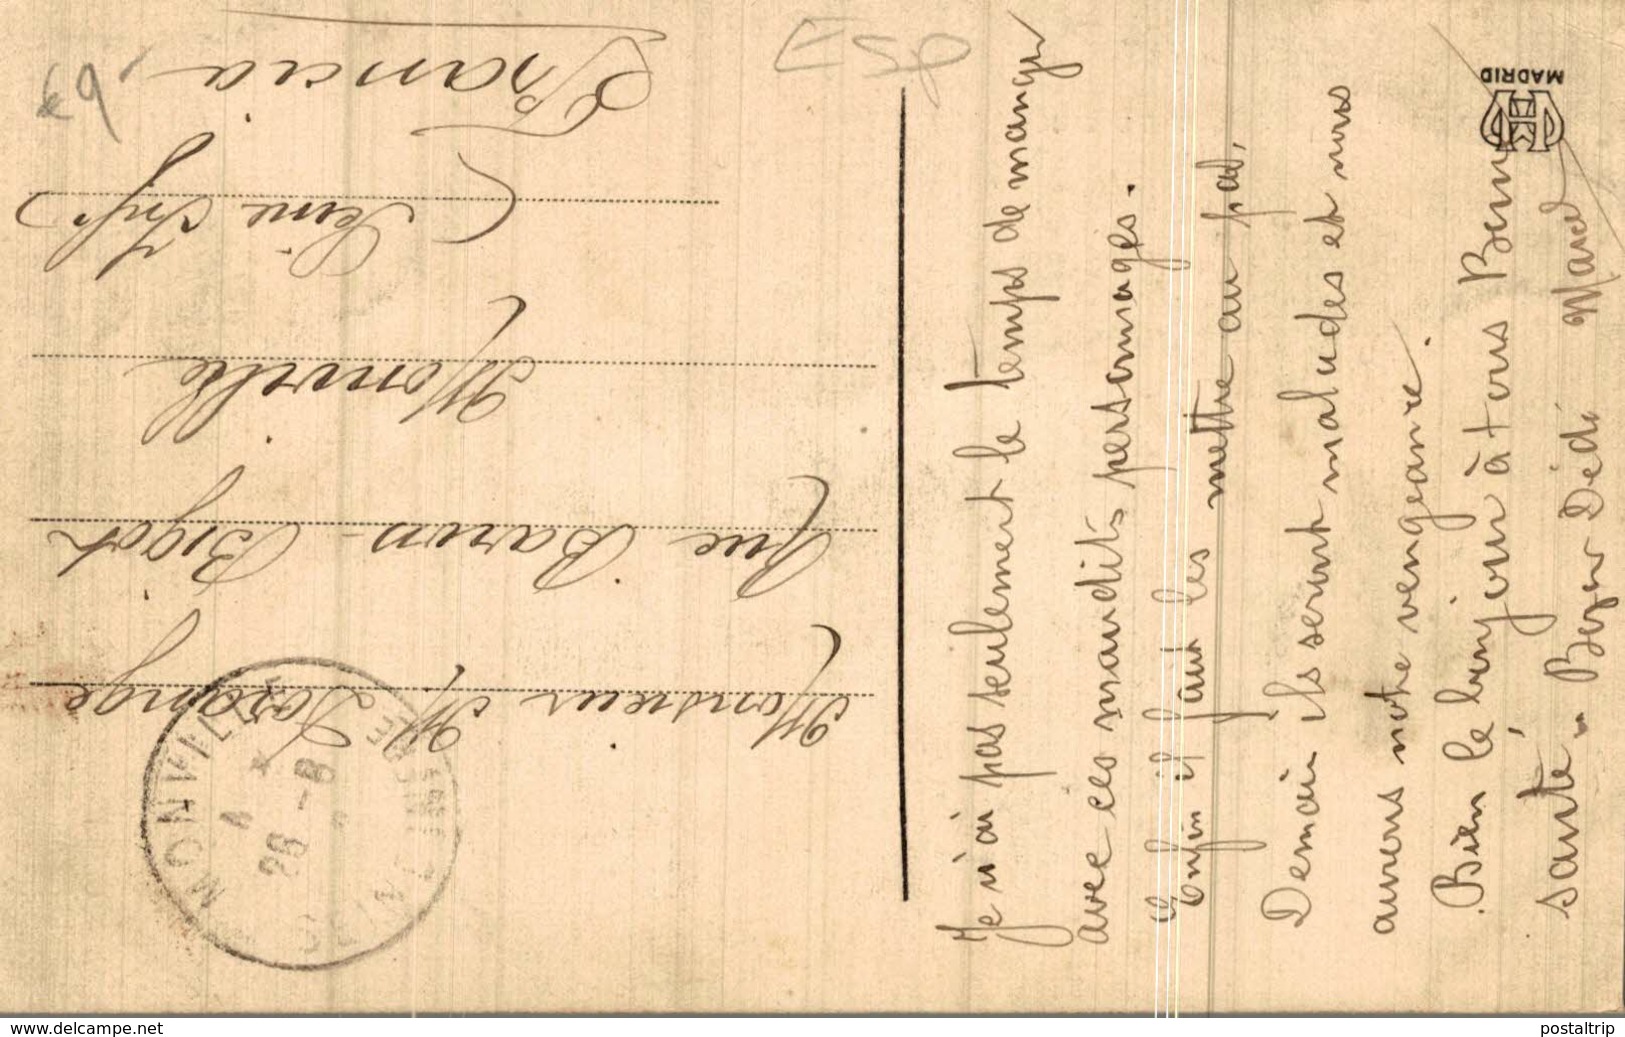 Je n'ai pas seulement le temps de manger
avec ces maudits personnages.
Enfin il faut les mettre au pas,
Demain ils seront malades et nous
aurons notre vengeance.
Bien le bonjour à tous Bonne
santé. Dédé Marcel
Monsieur M
Rue Baron-Bigot
Monville
(Seine Infre)
Francia
MONVILLE
SEINE INFRE
26 - 8
MADRID
ESP
www.delcampe.net
postaltrip